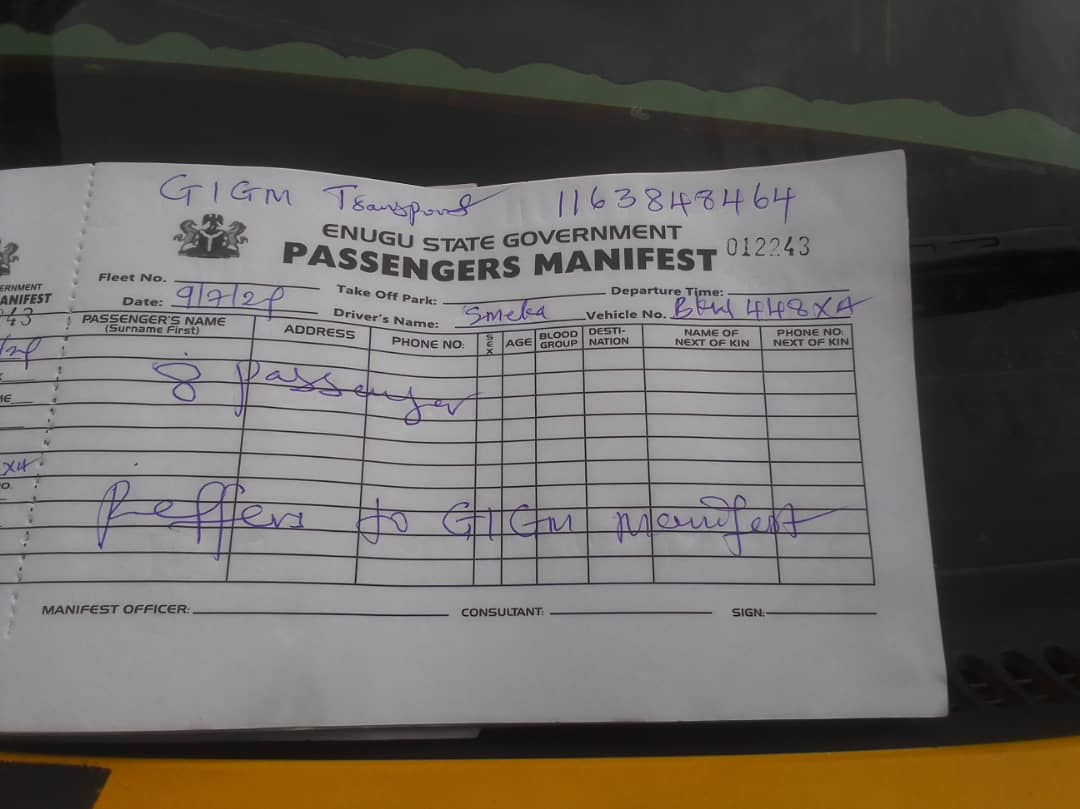 GIGM Transport 1163848464
ENUGU STATE GOVERNMENT
PASSENGERS MANIFEST 012243
Fleet No. Take Off Park: Departure Time:
Date: 9/7/2 Driver's Name: Smeka Vehicle No. 448XA
PASSENGER'S NAME (Surname First) ADDRESS PHONE NO: SEX AGE BLOOD GROUP DESTI-NATION NAME OF NEXT OF KIN PHONE NO: NEXT OF KIN
8 passenger
Reffers to GIGM manifest
MANIFEST OFFICER: CONSULTANT: SIGN:
ERNMENT
ANIFEST
43
ME
XA
O.